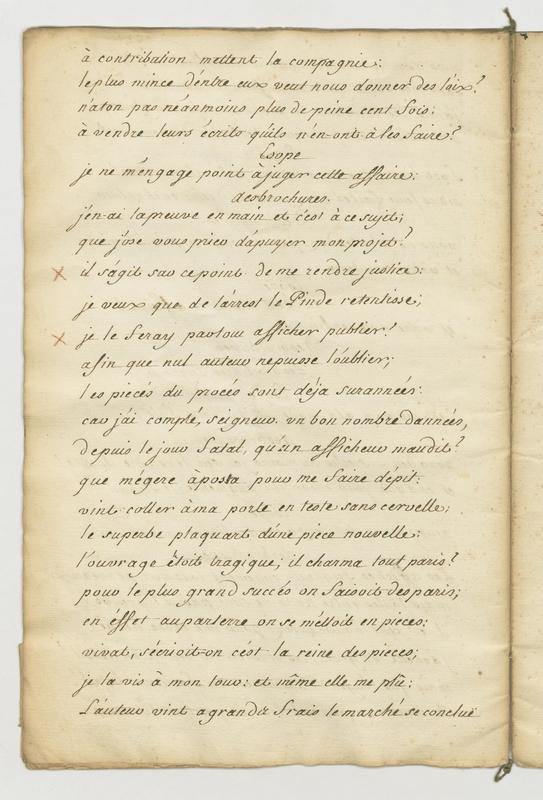 à contribution mettent la compagnie:
le plus mince d'entre eux veut nous donner des loix?
n'aton pas néanmoins plus de peine cent fois:
à vendre leurs écrits qu'ils n'en ont à les faire?
Esope
je ne m'engage point à juger cette affaire:
desbrochures.
j'en ai la preuve en main et c'est à ce sujet;
que j'ose vous prier d'apuyer mon projet?
il s'agit sur ce point de me rendre justice:
je veux que de l'arrest le Pinde retentisse;
je le feray partout afficher publier!
afin que nul auteur ne puisse l'oublier;
les pieces du procés sont déja surannées:
car j'ai compté, seigneur un bon nombre d'années,
depuis le jour fatal, qu'un afficheur maudit?
que mégere aposta pour me faire dépit:
vint coller à ma porte en teste sans cervelle;
le superbe plaquart d'une piece nouvelle:
l'ouvrage étoit tragique; il charma tout paris?
pour le plus grand succés on faisoit des paris;
en éffet au parterre on se méttoit en pieces:
vivat, s'écrioit-on c'ést la reine des pieces;
je la vis à mon tour: et même elle me plû:
l'auteur vint a grands frais le marché se conclut